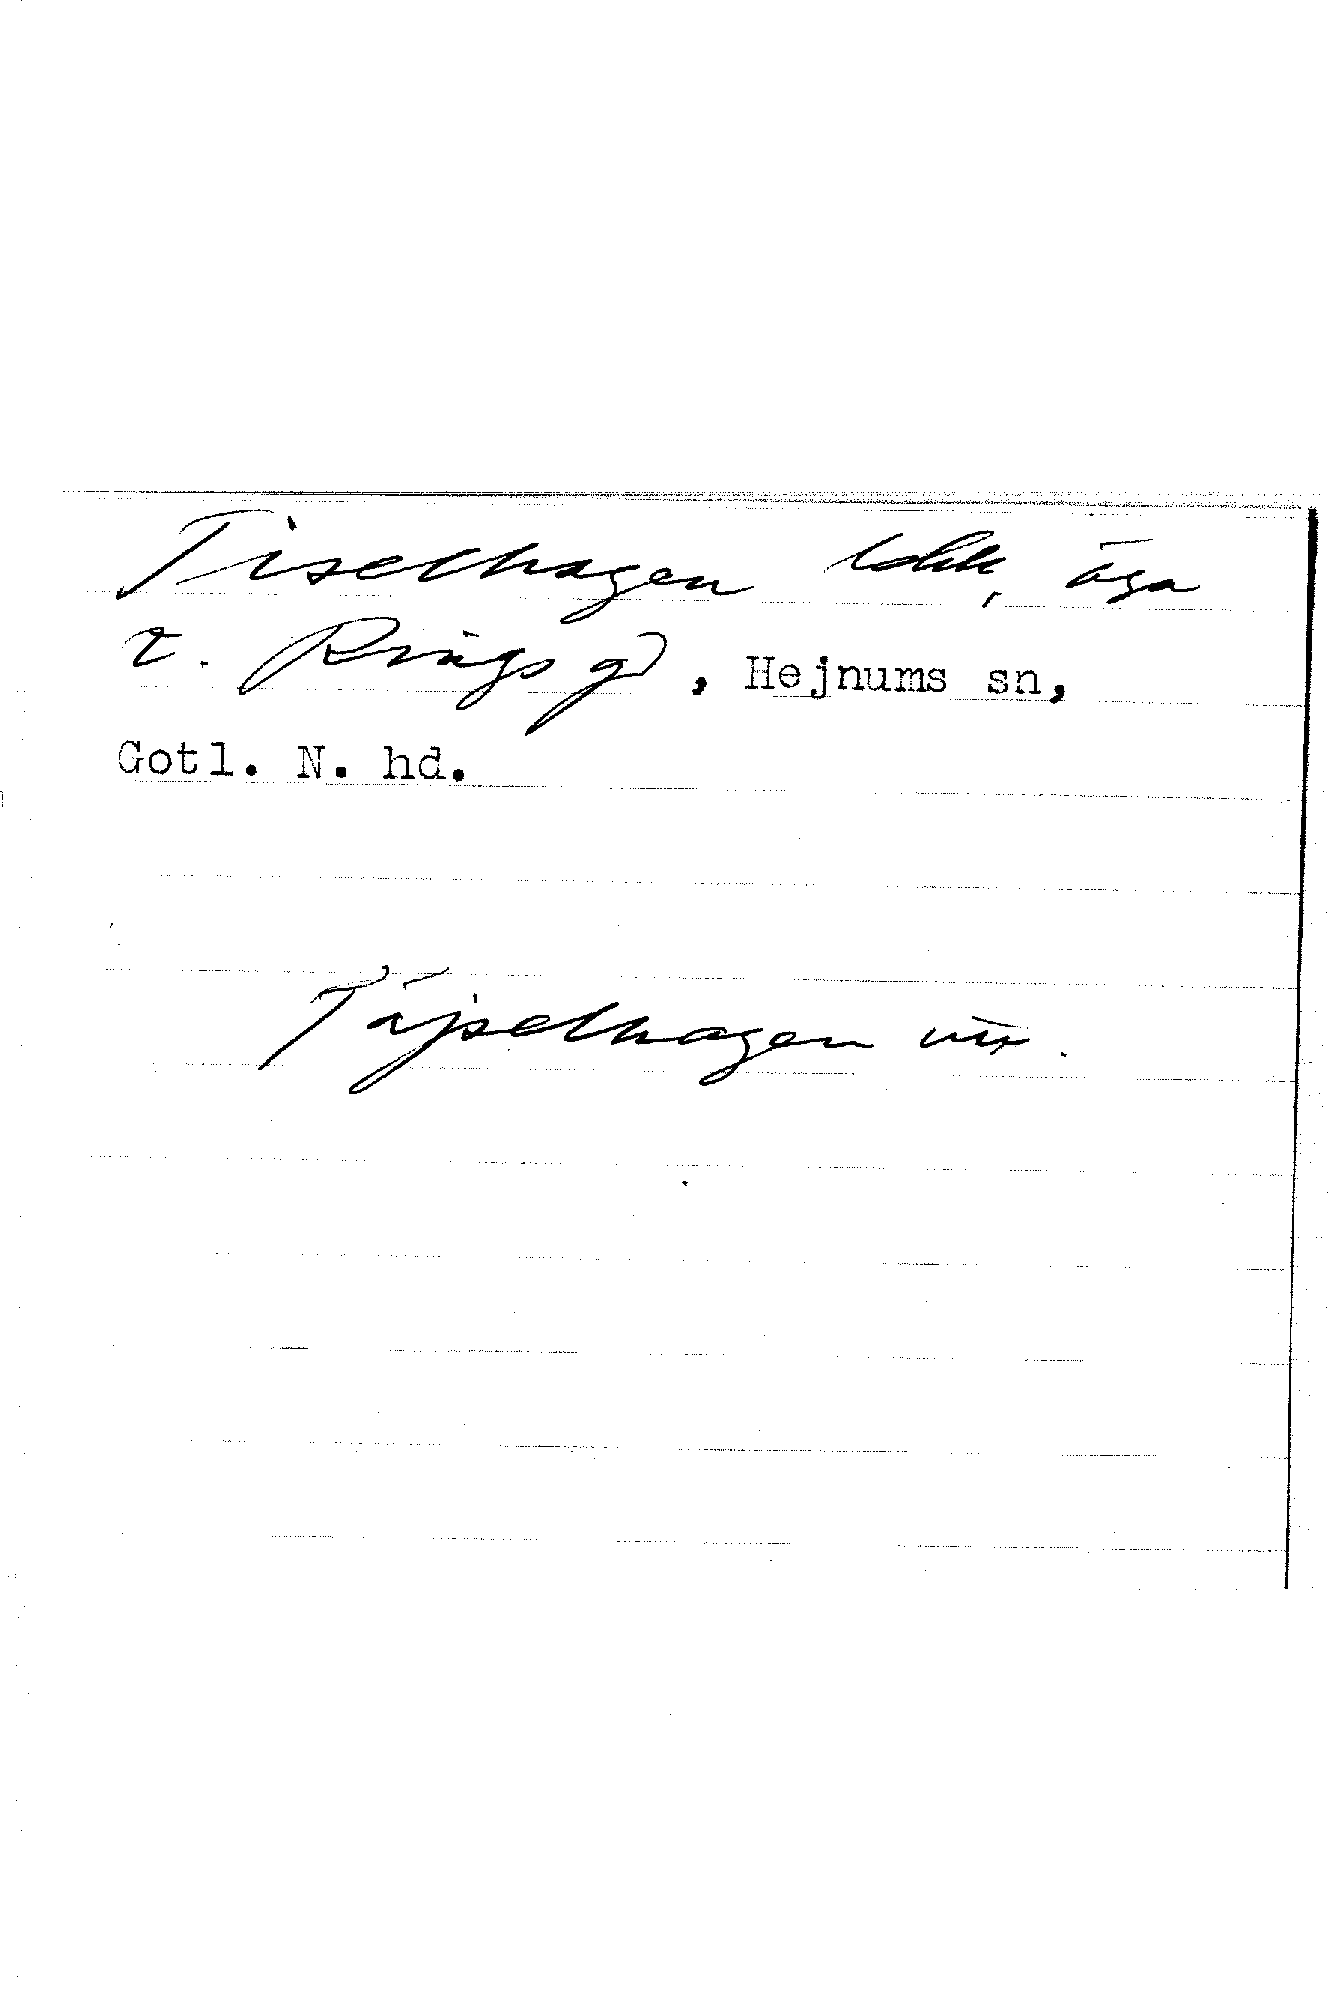 Tiselhagen lokk, äga
t. Rings gd, Hejnums sn,
Gotl. N. hd.
Tājselhagen